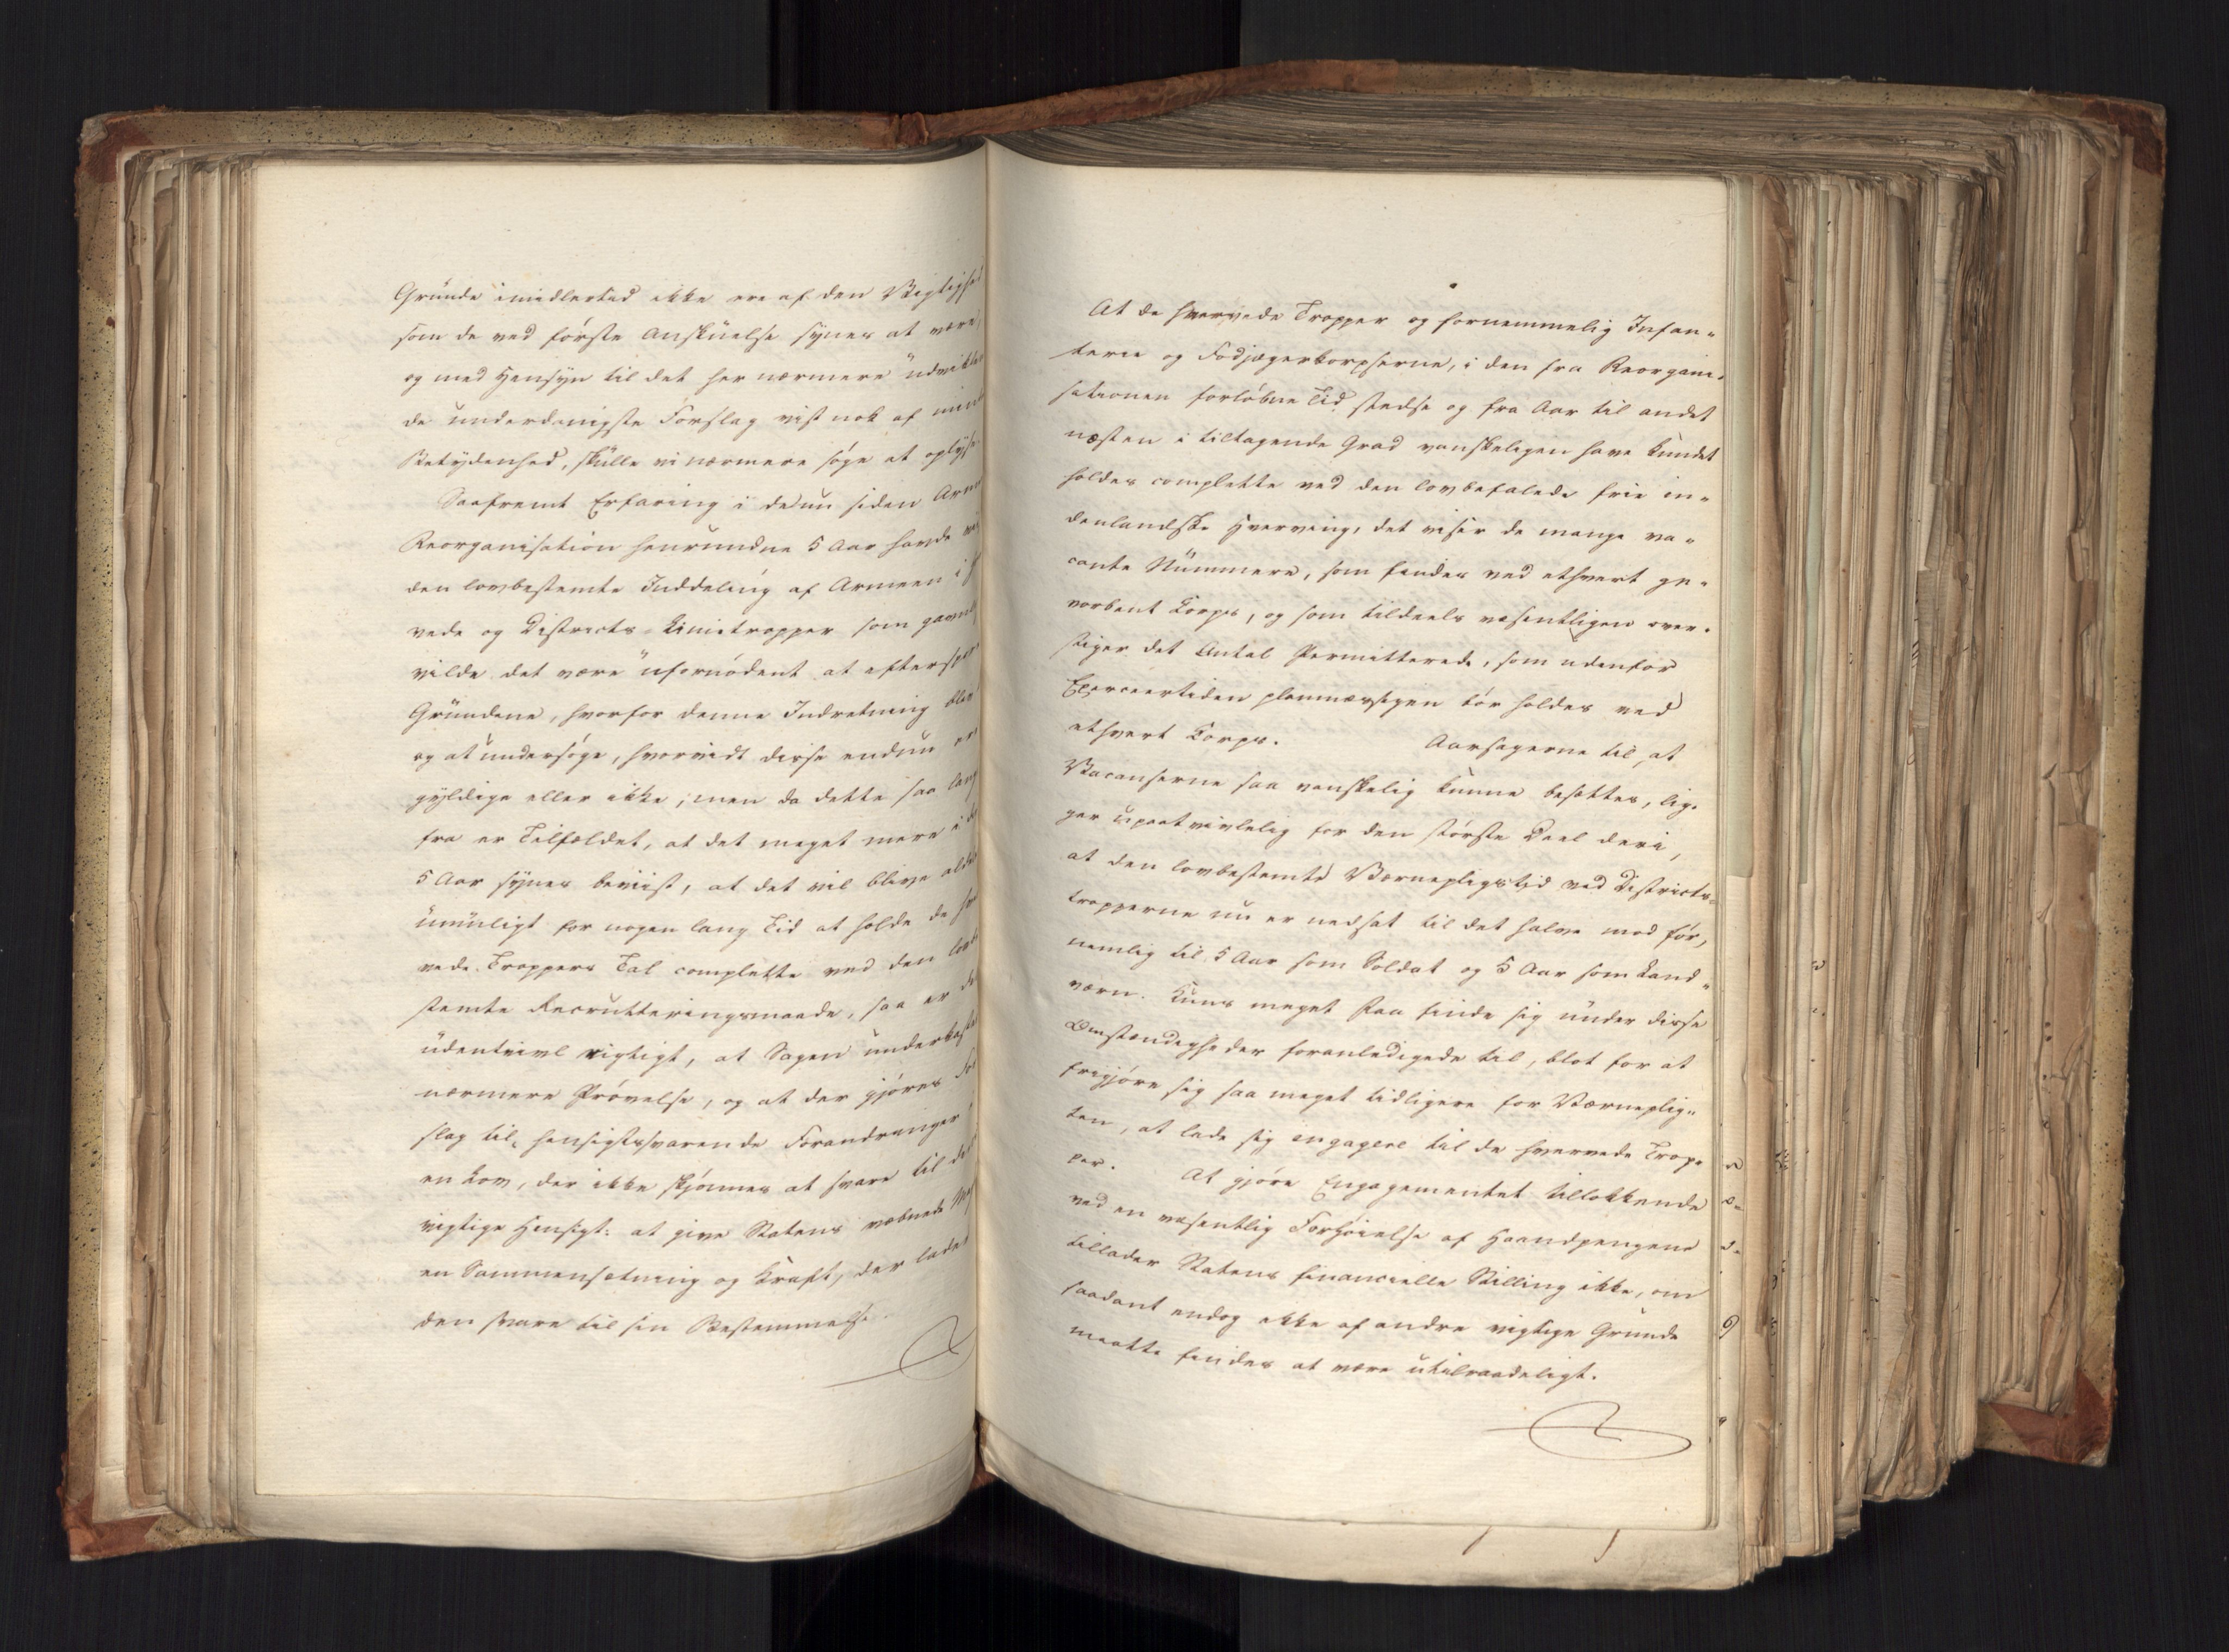 Grunde imidlertid ikke ere af den Vigtighed
som de ved förste Anskuelse synes at være,
og med Hensyn til det her nærmere udvikle
de underdanigste Forslag vist nok af mind
Betydenhed, skulle vi nærmere söge at oplyse
Saafremt Erfaring i de nu siden Arm
Reorganisation henrundne 5 Aar havde
den lovbestemte Inddeling af Armeen i
vede og Districts-Linietropper som gavnl
vilde det være ufornödent at efterspor
Grundene, hvorfor denne Indretning blev
og at undersöge, hvorvidt disse endnu er
gyldige eller ikke; men da dette saa lang
fra er Tilfældet, at det meget mere i d
5 Aar synes beviist, at det vil blive alde
umuligt for nogen lang Tid at holde de h
vede Troppers Tal complette ved den lovb
stemte Recrutteringsmaade, saa er d
udentvivl vigtigt, at Sagen underkaste
nærmere Prövelse, og at der gjöres For
slag til hensigtssvarende Forandringer
en Lov, der ikke skjönnes at svare til d
vigtige Hensigt: at give Statens væbnede
en Sammensætning og Kraft, der lader
den svare til sin Bestemmelse.
At de hvervede Tropper og fornemmelig Infan-
terie og Fodjægerkorpserne, i den fra Reorgani-
sationen forlöbne Tid stedse og fra Aar til andet
næsten i tiltagende Grad vanskeligen have kundet
holdes complette ved den lovbefalede frie in-
denlandske Hverving, det viser de mange va-
cante Nummere, som findes ved ethvert ge-
vorbent Korps, og som tildeels væsentligen over-
stiger det Antal Permitterede, som udenfor
Exerceertiden planmæssigen bör holdes ved
ethvert Korps. Aarsagerne til, at
Vacanserne saa vanskelig kunne besættes, lig-
ger upaatvivlelig for den störste Deel deri,
at den lovbestemte Værnepligtstid ved Districts-
tropperne nu er nedsat til det halve mod för,
nemlig til 5 Aar som Soldat og 5 Aar som Land-
værn. Kuns meget faa finde sig under disse
Omstændigheder foranledigede til, blot for at
frigjöre sig saa meget tidligere for Værneplig-
ten, at lade sig engagere til de hvervede Trop-
per. At gjöre Engagementet tillokkende
ved en væsentlig Forhöielse af Haandpengene
tillader Statens financielle Stilling ikke, om
saadant endog ikke af andre vigtige Grunde
maatte findes at være utilraadeligt.